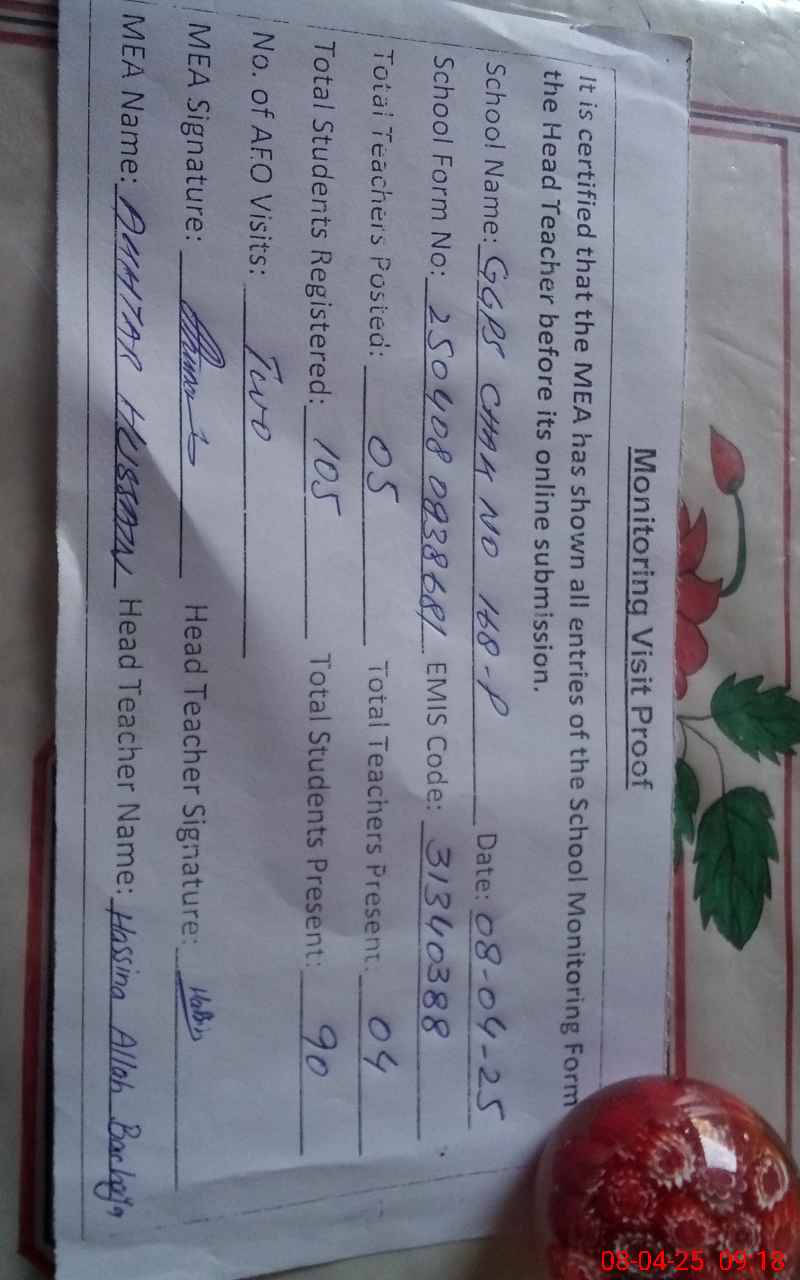 Monitoring Visit Proof
It is certified that the MEA has shown all entries of the School Monitoring Form
the Head Teacher before its online submission.
School Name: GGPS CHAK NO 168-P Date: 08-04-25
School Form No: 250408 0838681 EMIS Code: 31340388
Total Teachers Posted: 05 Total Teachers Present: 04
Total Students Registered: 105 Total Students Present: 90
No. of AEO Visits: Two
MEA Signature: Head Teacher Signature:
MEA Name: HUSSAIN Head Teacher Name: Hassina Allah
08-04-25 09:18